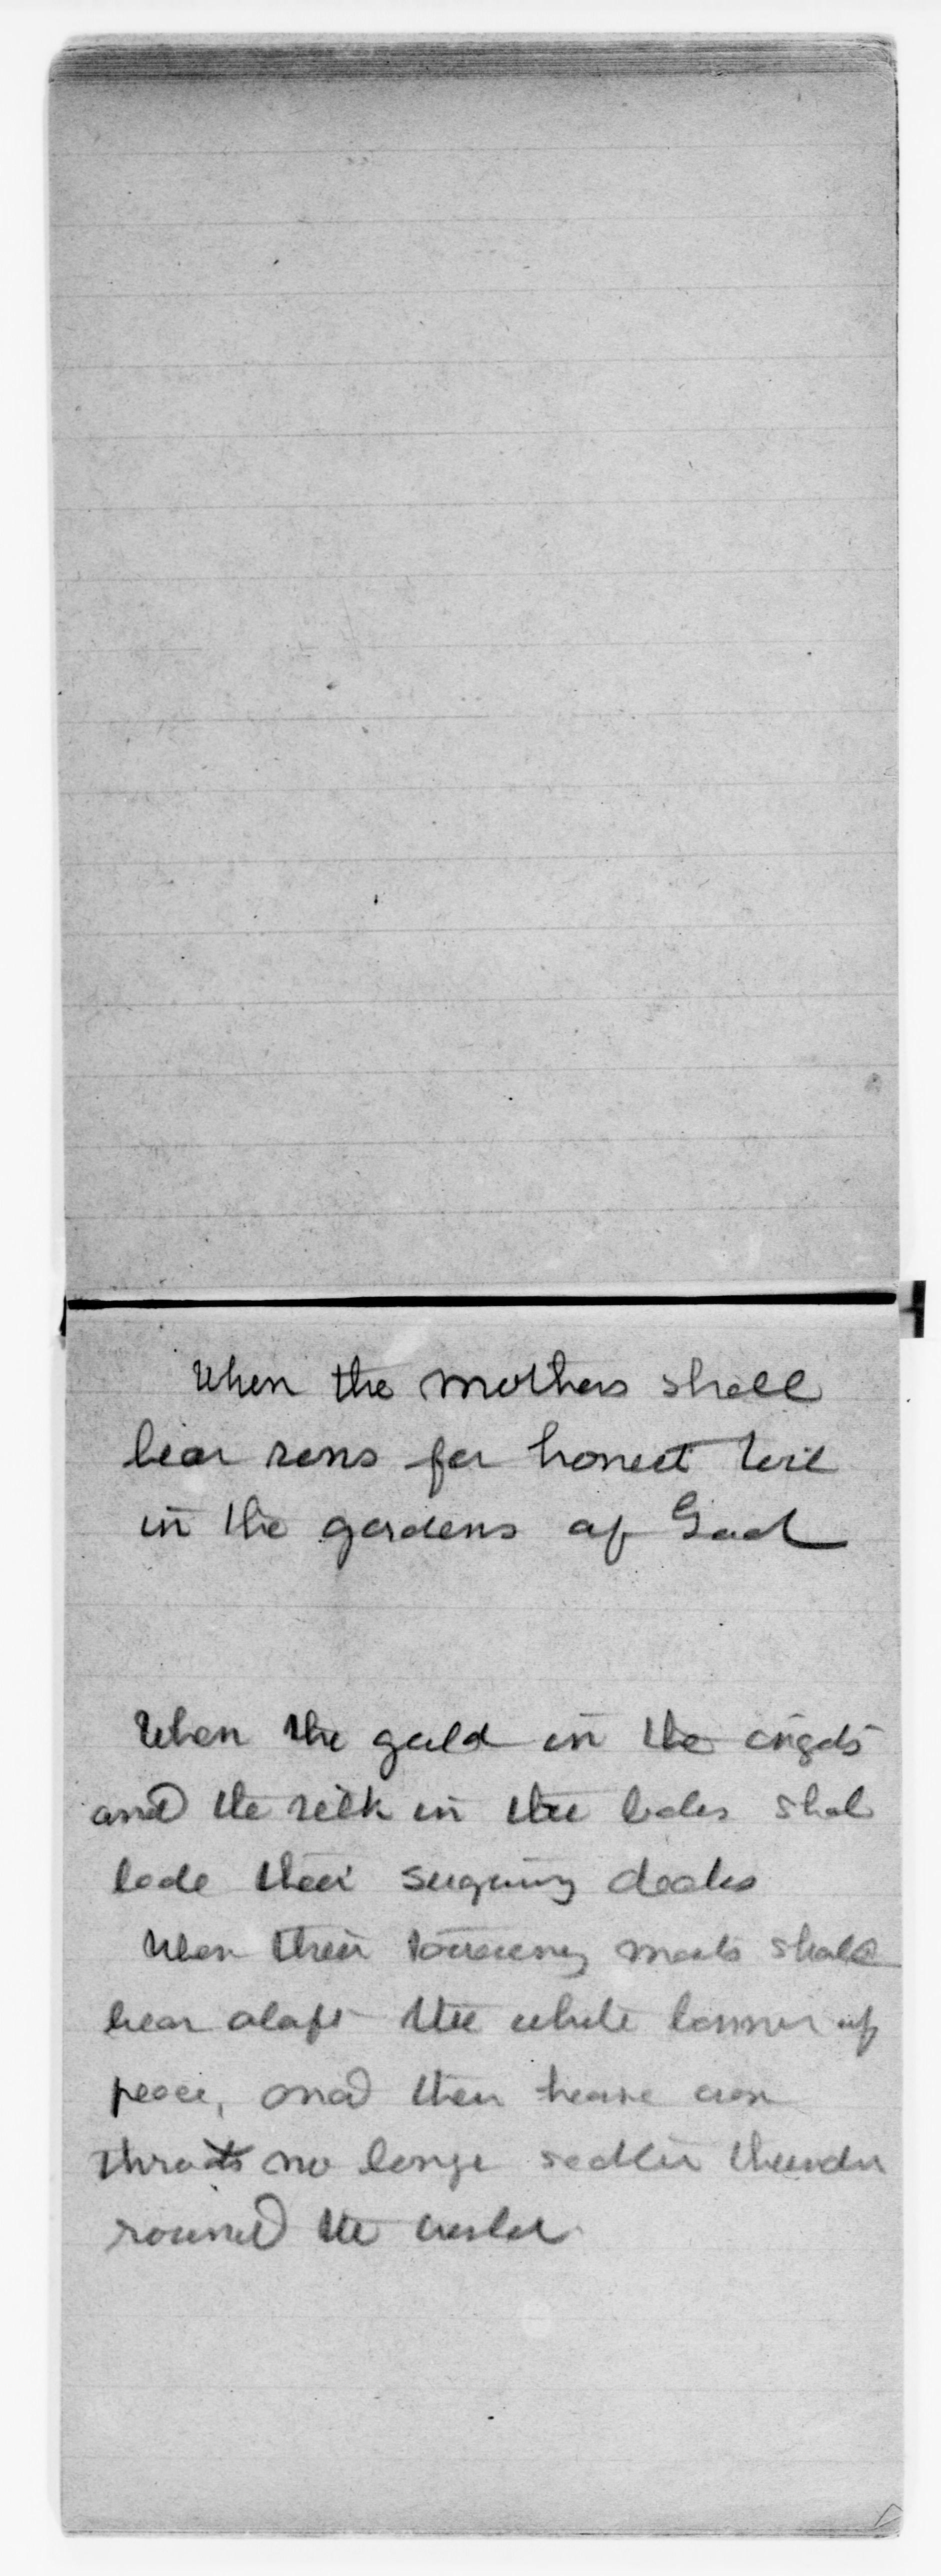 When the mothers shall
bear sons for honest toil
in the gardens of God
When the gold in the ingots
and the silk in the bales shal
lade their surging decks
When their towering masts shall
bear aloft the white banner of
peace, and their heavie iron
throats no longe scatter thunder
round the world